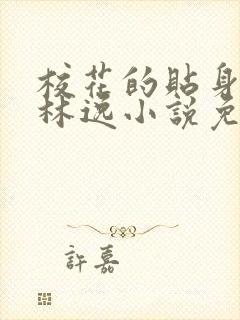 校花的貼身
林逸小說免
許嘉